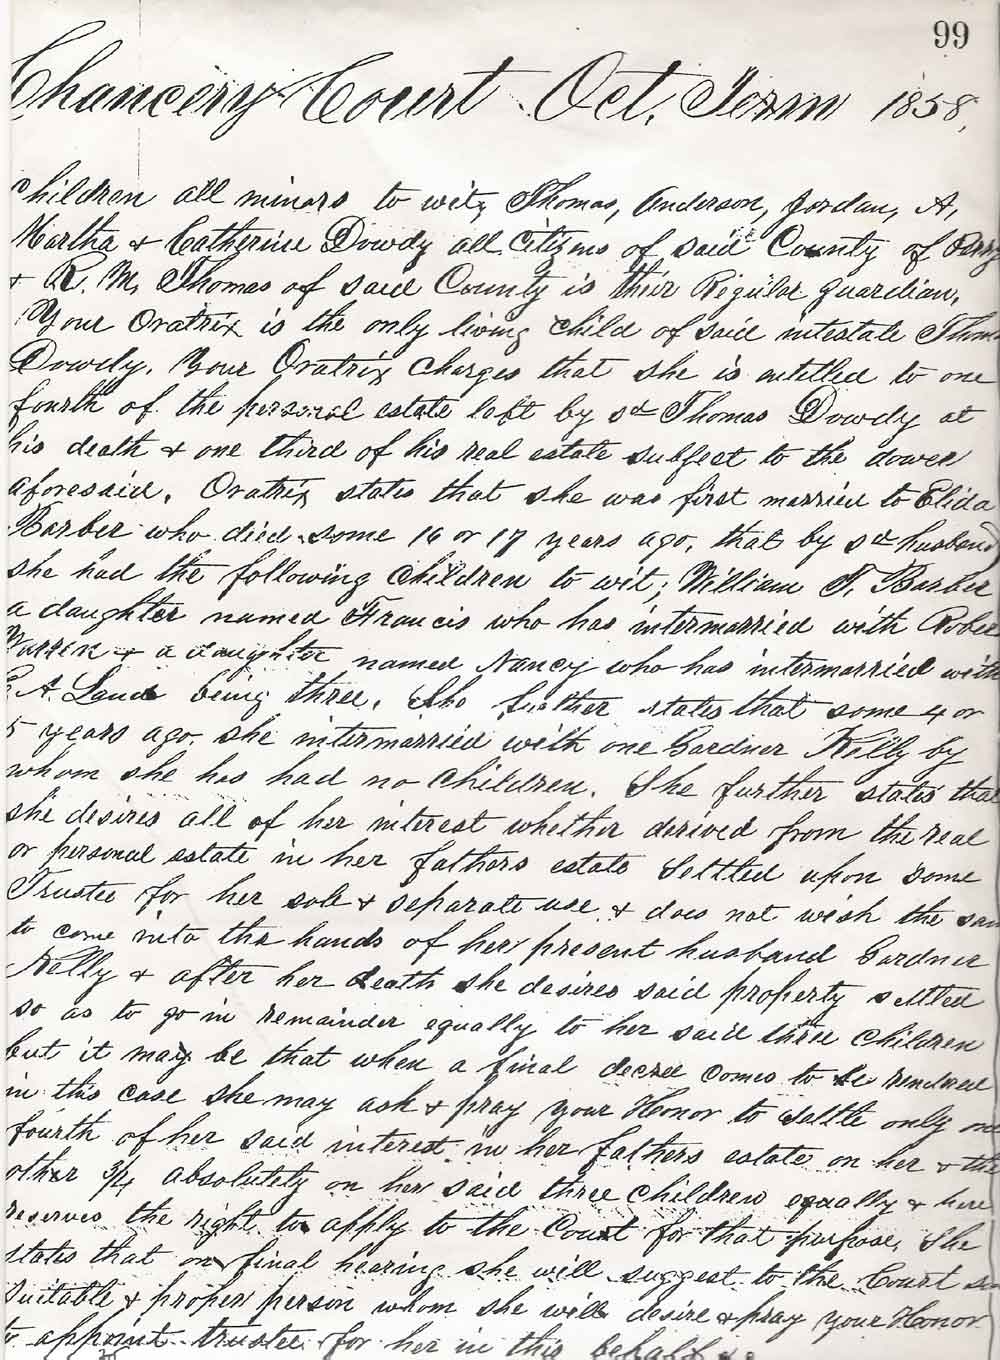 99
Chancery Court Oct. Term 1858,
Children all minors to wit, Thomas, Anderson, Jordan, A,
Martha & Catherine Dowdy all Citizens of said County of Perry
& R. M. Thomas of said County is their Regular guardian,
Your Oratrix is the only living child of said intestate Thom
Dowdy. Your Oratrix Charges that she is entitled to one
fourth of the personal estate left by sd Thomas Dowdy at
his death & one third of his real estate subject to the dower
aforesaid. Oratrix states that she was first married to Elida
Barber who died some 16 or 17 years ago, that by sd husband
she had the following Children to wit; William F. Barber
a daughter named Francis who has intermarried with Rober
Warren & a daughter named Nancy who has intermarried with
A. Land being three. She further states that some 4 or
5 years ago she intermarried with one Gardner Kelly by
whom she has had no children. She further states that
she desires all of her interest whether derived from the real
or personal estate in her fathers estate Settled upon some
Trustee for her sole & separate use & does not wish the sam
to come into the hands of her present husband Gardner
Kelly & after her death she desires said property settled
so as to go in remainder equally to her said three Children
but it may be that when a final decree comes to be rendered
in this case she may ask & pray your Honor to settle only one
fourth of her said interest in her fathers estate on her & the
other 3/4 absolutely on her said three children equally & here
reserves the right to apply to the Court for that purpose, She
states that on final hearing she will suggest to the Court so
Suitable & proper person whom she will desire & pray your Honor
to appoint trustee for her in this behalf